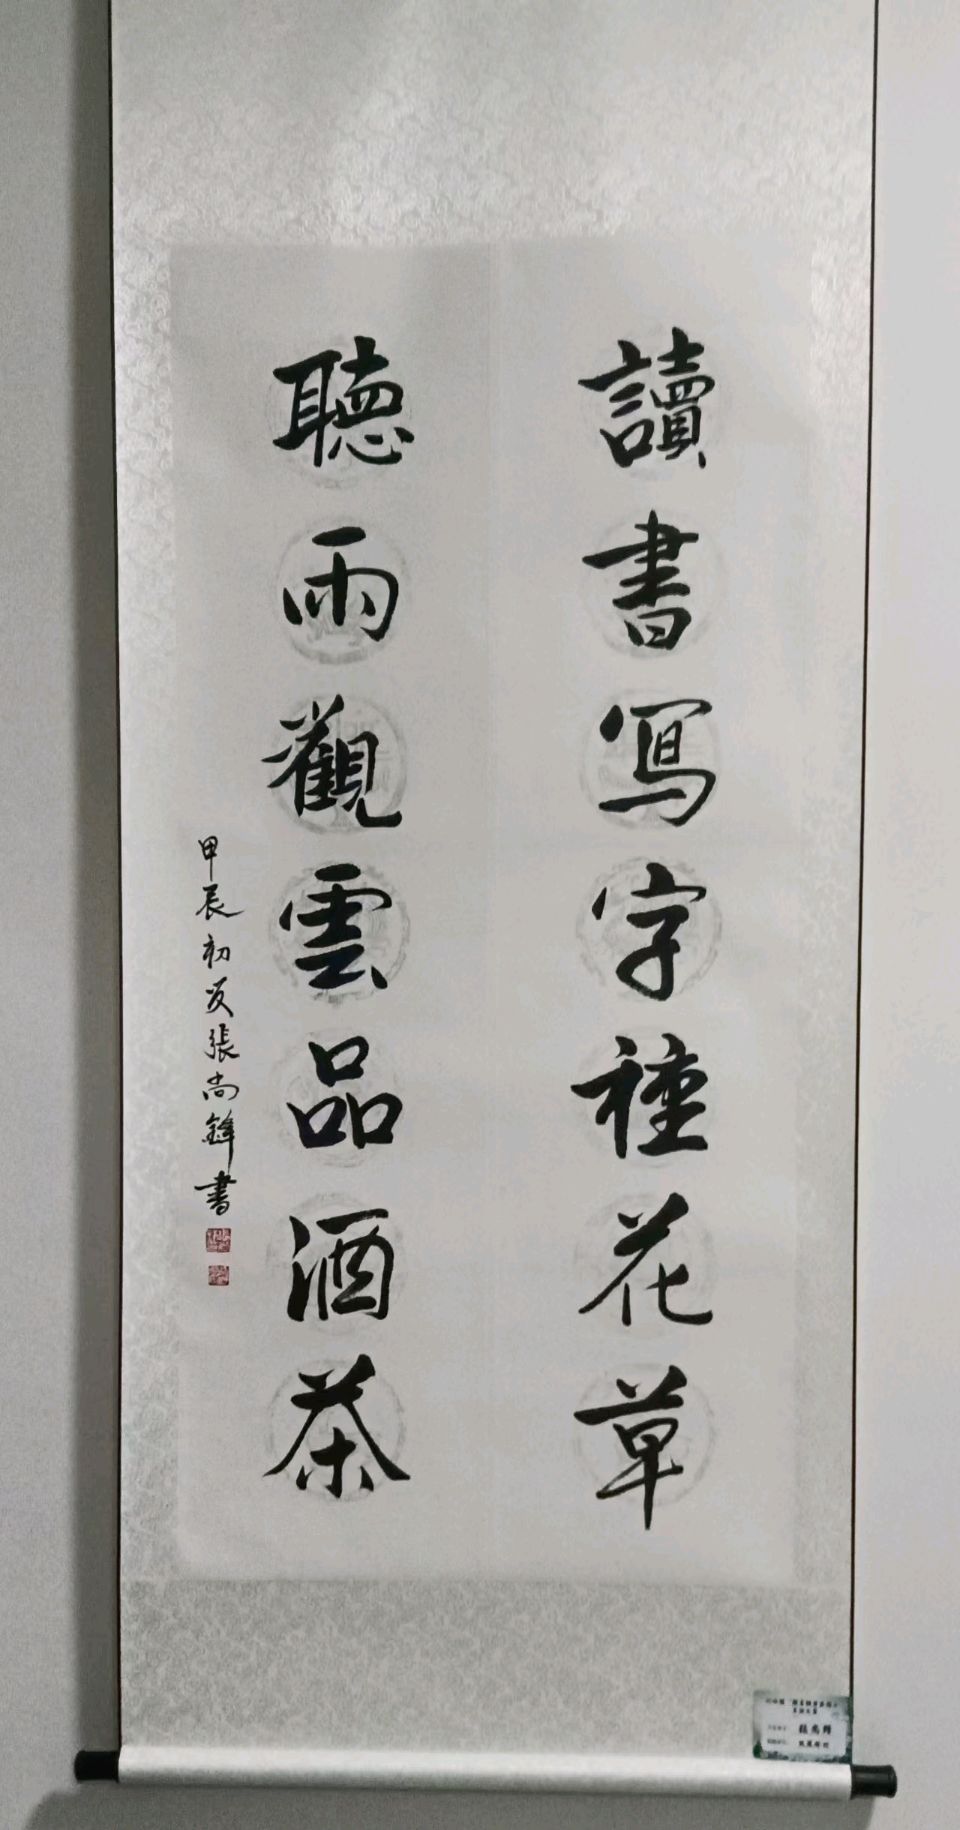 讀書寫字種花草
聽雨觀雲品酒茶
甲辰初夏張尚鋒書
張尚鋒